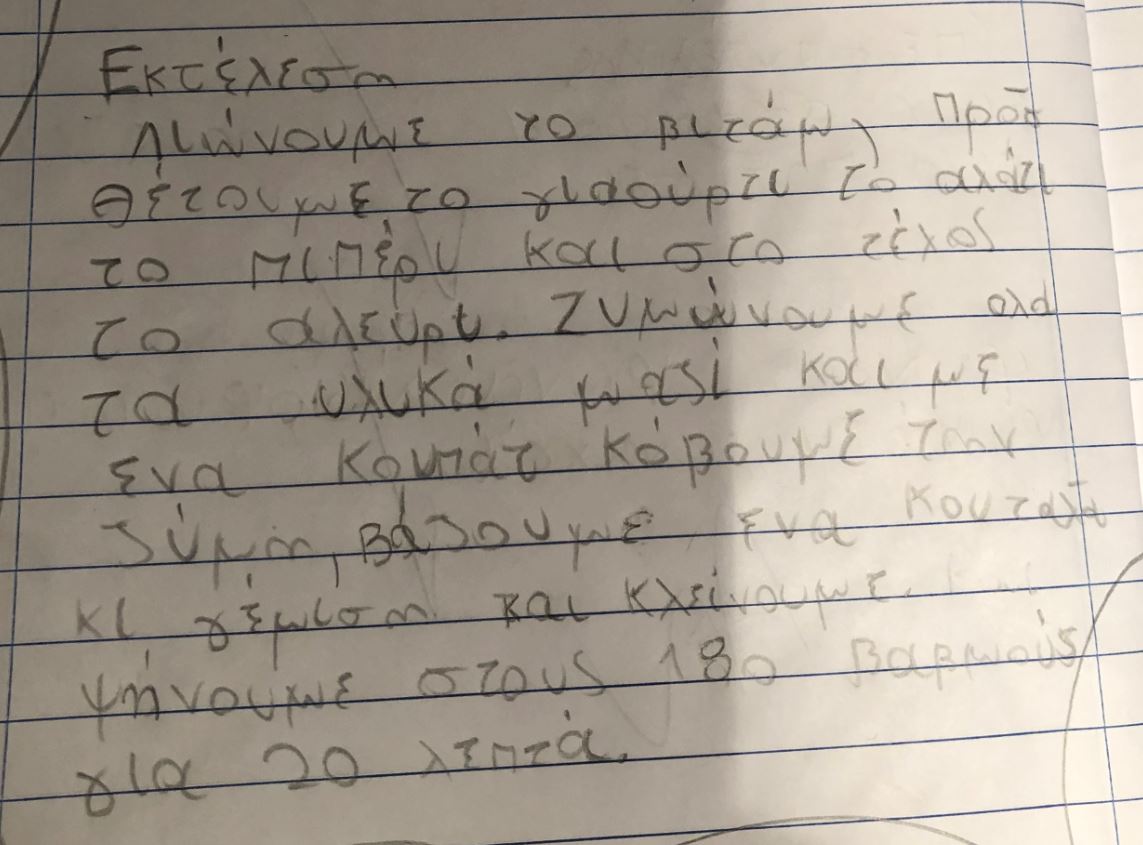 Εκτέλεση
Λιώνουμε το βιτάμ, Προσ
θέτουμε, το γιαούρτι το αλάτι
το πιπέρι και στο τέλος
το αλευρι. Ζυμώνουμε ολα
τα υλικά μαζί και με
ενα κουπάτ κόβουμε την
ζύμη, βάζουμε ενα κουταλά
κι γέμιση και κλείνουμε.
Ψήνουμε στους 180 βαβμούς
για 20 λεπτά.